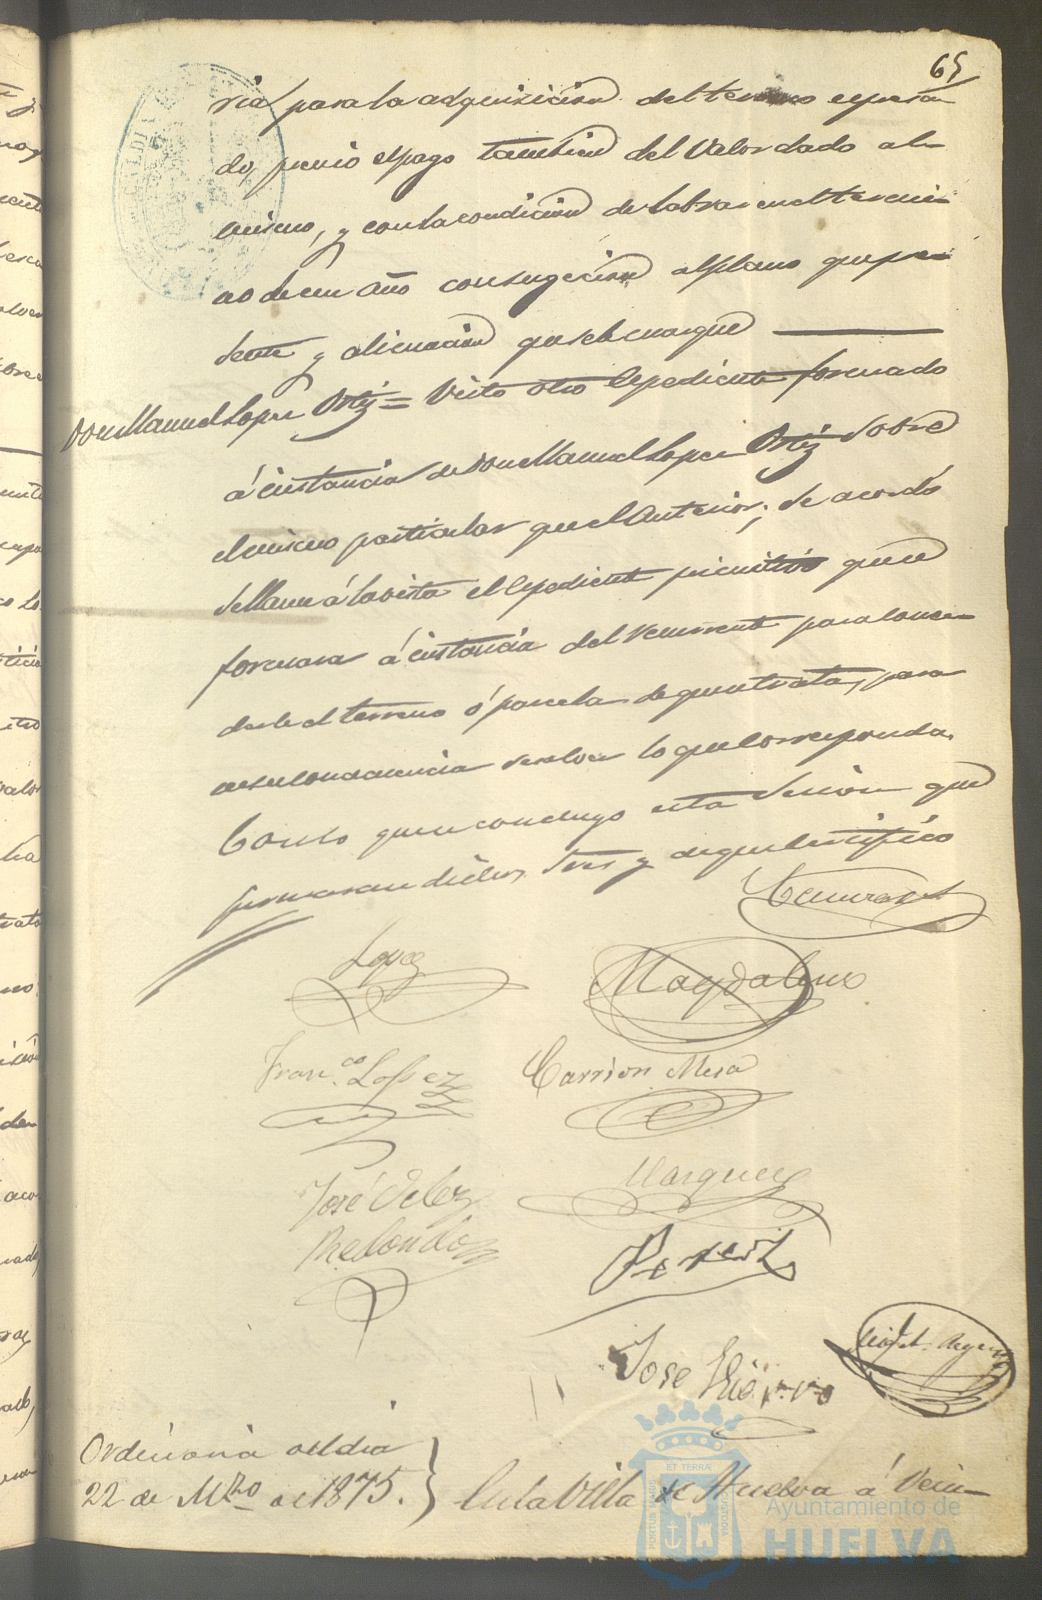 65
ria para la adquisicion del terreno espresa
do, previo el pago tambien del valor dado al
mismo, y con la condicion de labrar en el termi
no de un año con sugecion al plano que pre
sente y alineacion que se le marque
Don Manuel Lopez Ortiz = Visto otro Espediente formado
á instancia de Don Manuel Lopez Ortiz sobre
el mismo particular que el anterior; se acordó
se llame á la vista el Espediente primitivo que se
formara á instancia del recurrente para conce
derle el terreno ó parcela de que se trata, para
en su consecuencia resolver lo que corresponda.
Con lo que se concluyo esta Sesion que
firmaran dichos Sres y de que certifico
Lopez
Magdaleno
Franco. Lopez
Carrion Mesa
José
Redondo
Marquez
Jose Hierro
Ordinaria del dia
22 de Mzo de 1875.
En la Villa de Huelva á Vein
PORTUS MARIS
ET TERRÆ
CUSTODIA
Ayuntamiento de
HUELVA